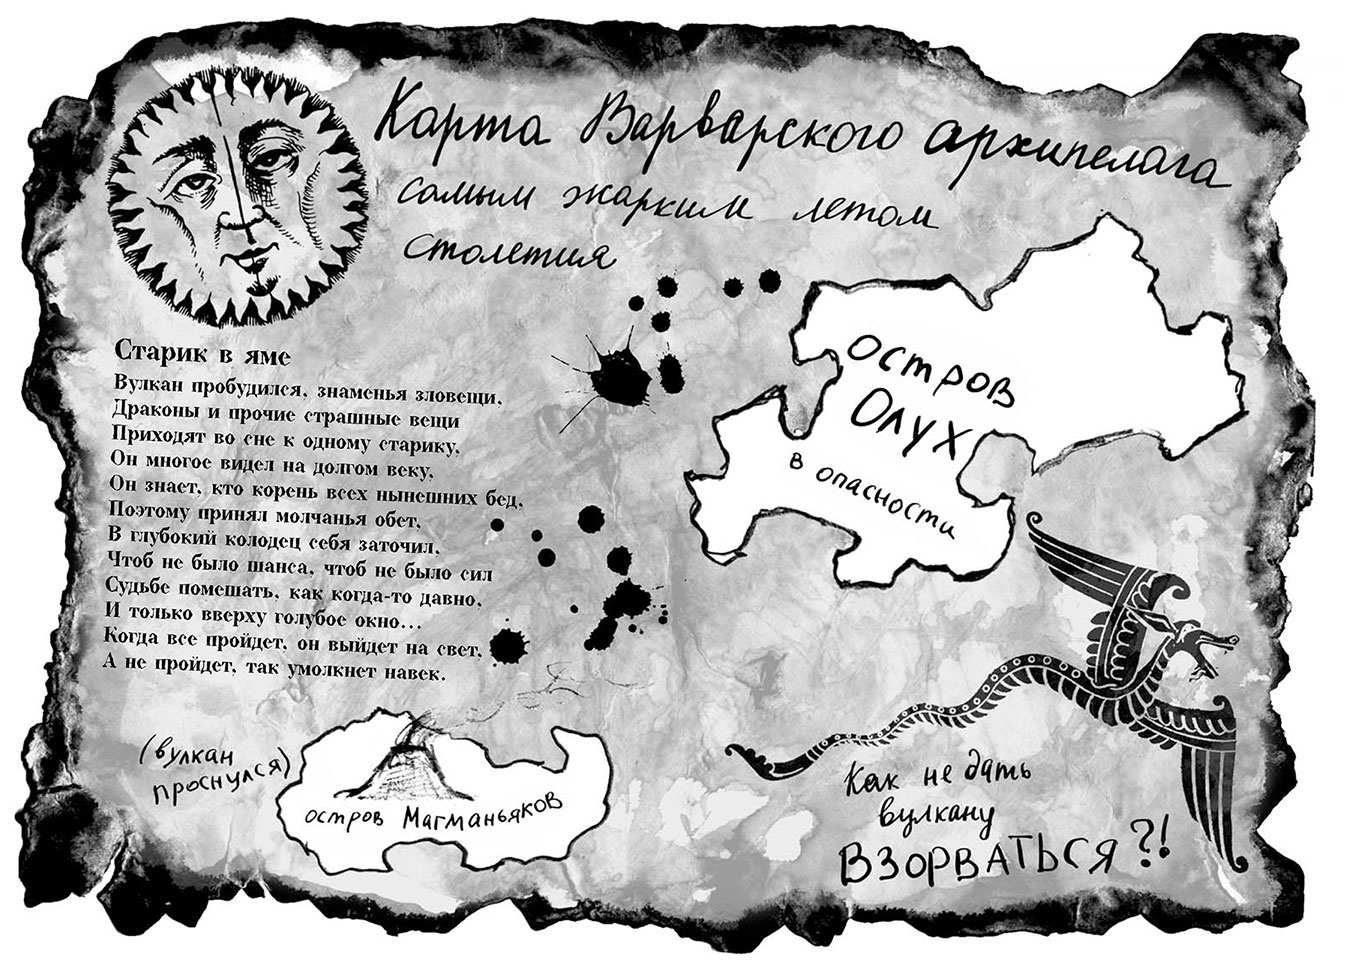 Карта Варварского архипелага
самым жарким летом
столетия
Старик в яме
Вулкан пробудился, знаменья зловещи,
Драконы и прочие страшные вещи
Приходят во сне к одному старику,
Он многое видел на долгом веку,
Он знает, кто корень всех нынешних бед,
Поэтому принял молчанья обет,
В глубокий колодец себя заточил,
Чтоб не было шанса, чтоб не было сил
Судьбе помешать, как когда-то давно,
И только вверху голубое окно...
Когда все пройдет, он выйдет на свет,
А не пройдет, так умолкнет навек.
остров
Олух
в опасности
(вулкан
проснулся)
остров Магманьяков
Как не дать
вулкану
ВЗОРВАТЬСЯ?!